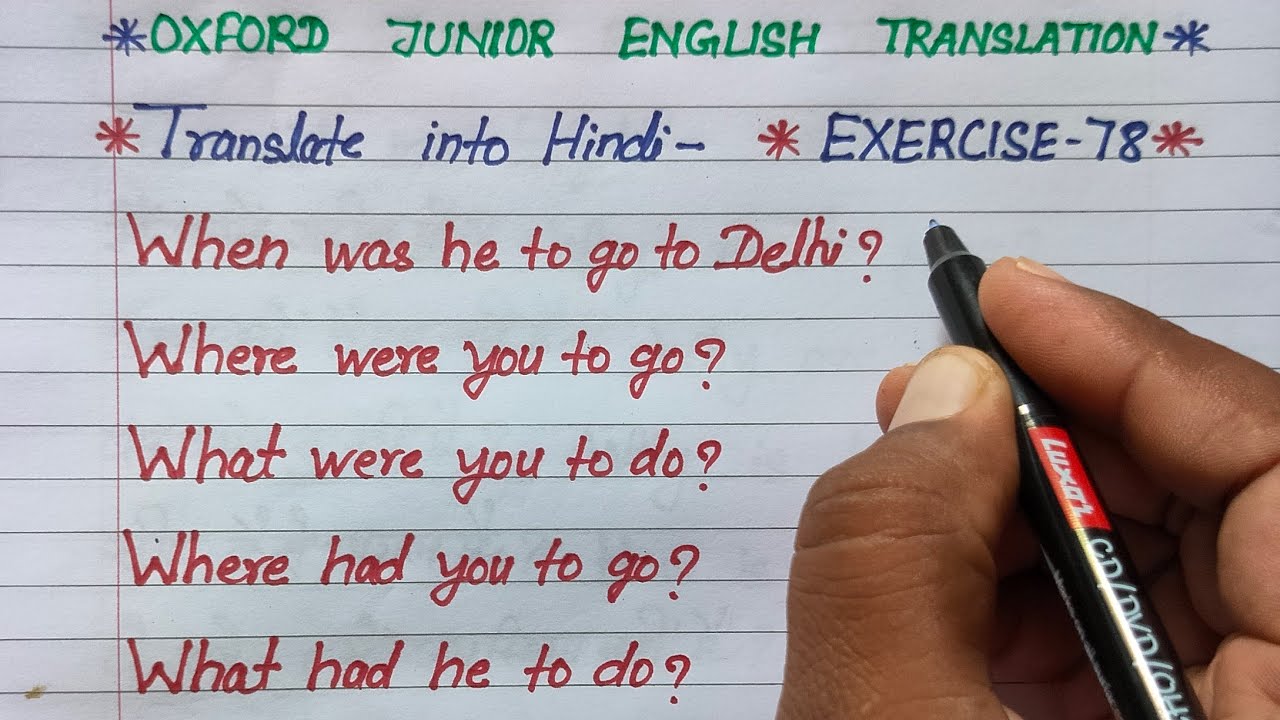 *OXFORD JUNIOR ENGLISH TRANSLATION*
*Translate into Hindi- * EXERCISE-78*
When was he to go to Delhi?
Where were you to go?
What were you to do?
Where had you to go?
What had he to do?
Luxor
CD/DVD/OH